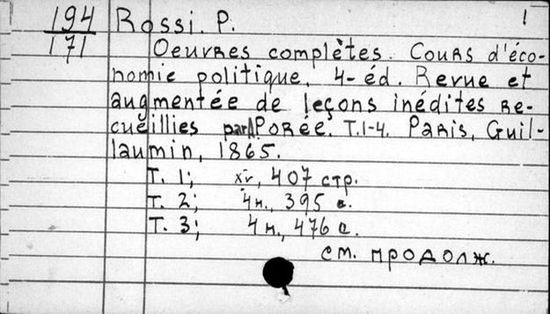 194 Rossi. P. 1
171 Oeuvres complètes. Cours d'éco-
nomie politique. 4-éd. Revue et
augmentée de leçons inédites re-
cueillies par A. Porée. T.1-4. Paris, Guil-
laumin, 1865.
T. 1; XV, 407 стр.
T. 2; 4 н., 395 с.
T. 3; 4 н., 476 с.
см. продолж.